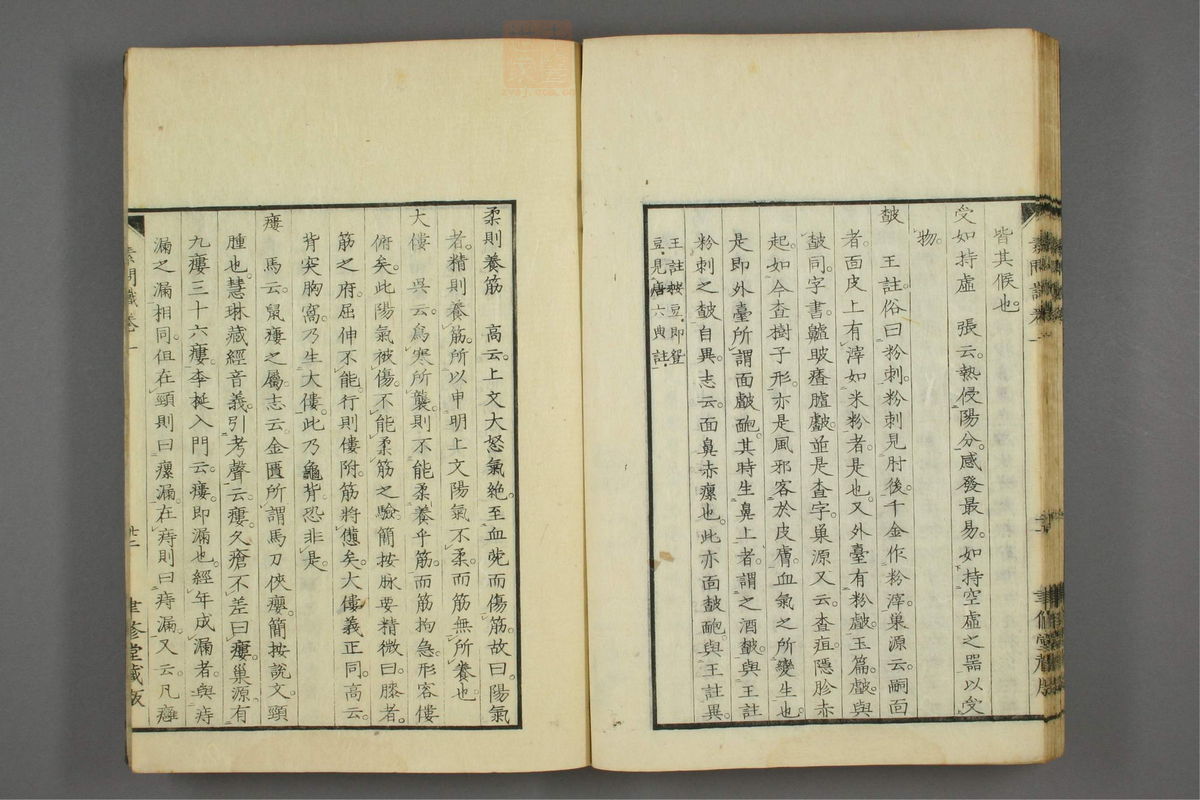 皆其候也。
受如持虛　張云。熱侵陽分。感發最易。如持空虛之器以受
物。
皶　王註俗曰粉刺。粉刺見肘後。千金作粉滓。巢源云。嗣面
者。面皮上有滓如米粉者。是也。又外臺有粉皻。玉篇。皻。與
皶同。字書。䶥皻㾴䐒皻。並是查字。巢源又云。查疽。隱胗赤
起。如今查樹子形。亦是風邪客於皮膚。血氣之所變生也。
是即外臺所謂面皻皰。其時生鼻上者。謂之酒皶。與王註
粉刺之皶自異。志云。面鼻赤瘰也。此亦面皶皰。與王註異。
王註按豆。即豋
豆。見唐六典註。
柔則養筋　高云。上文大怒氣絕。至血菀而傷筋。故曰。陽氣
者。精則養筋。所以申明上文陽氣不柔。而筋無所養也
大僂　吳云。爲寒所襲。則不能柔養乎筋。而筋拘急。形容僂
俯矣。此陽氣被傷。不能柔筋之驗。簡按脉要精微曰。膝者。
筋之府。屈伸不能。行則僂附。筋將憊矣。大僂義正同。高云。
背突胸窩。乃生大僂。此乃龜背。恐非是。
瘻　馬云。鼠瘻之屬。志云。金匱所謂馬刀俠癭。簡按說文。頸
腫也。慧琳藏經音義。引考聲云。瘻。久瘡不差曰瘻。巢源有
九瘻三十六瘻。李梴入門云。瘻。即漏也。經年成漏者。與痔
漏之漏相同。但在頸則曰瘰漏。在痔則曰痔漏。又云。凡癰
素問識卷一
廿二
聿修堂藏版